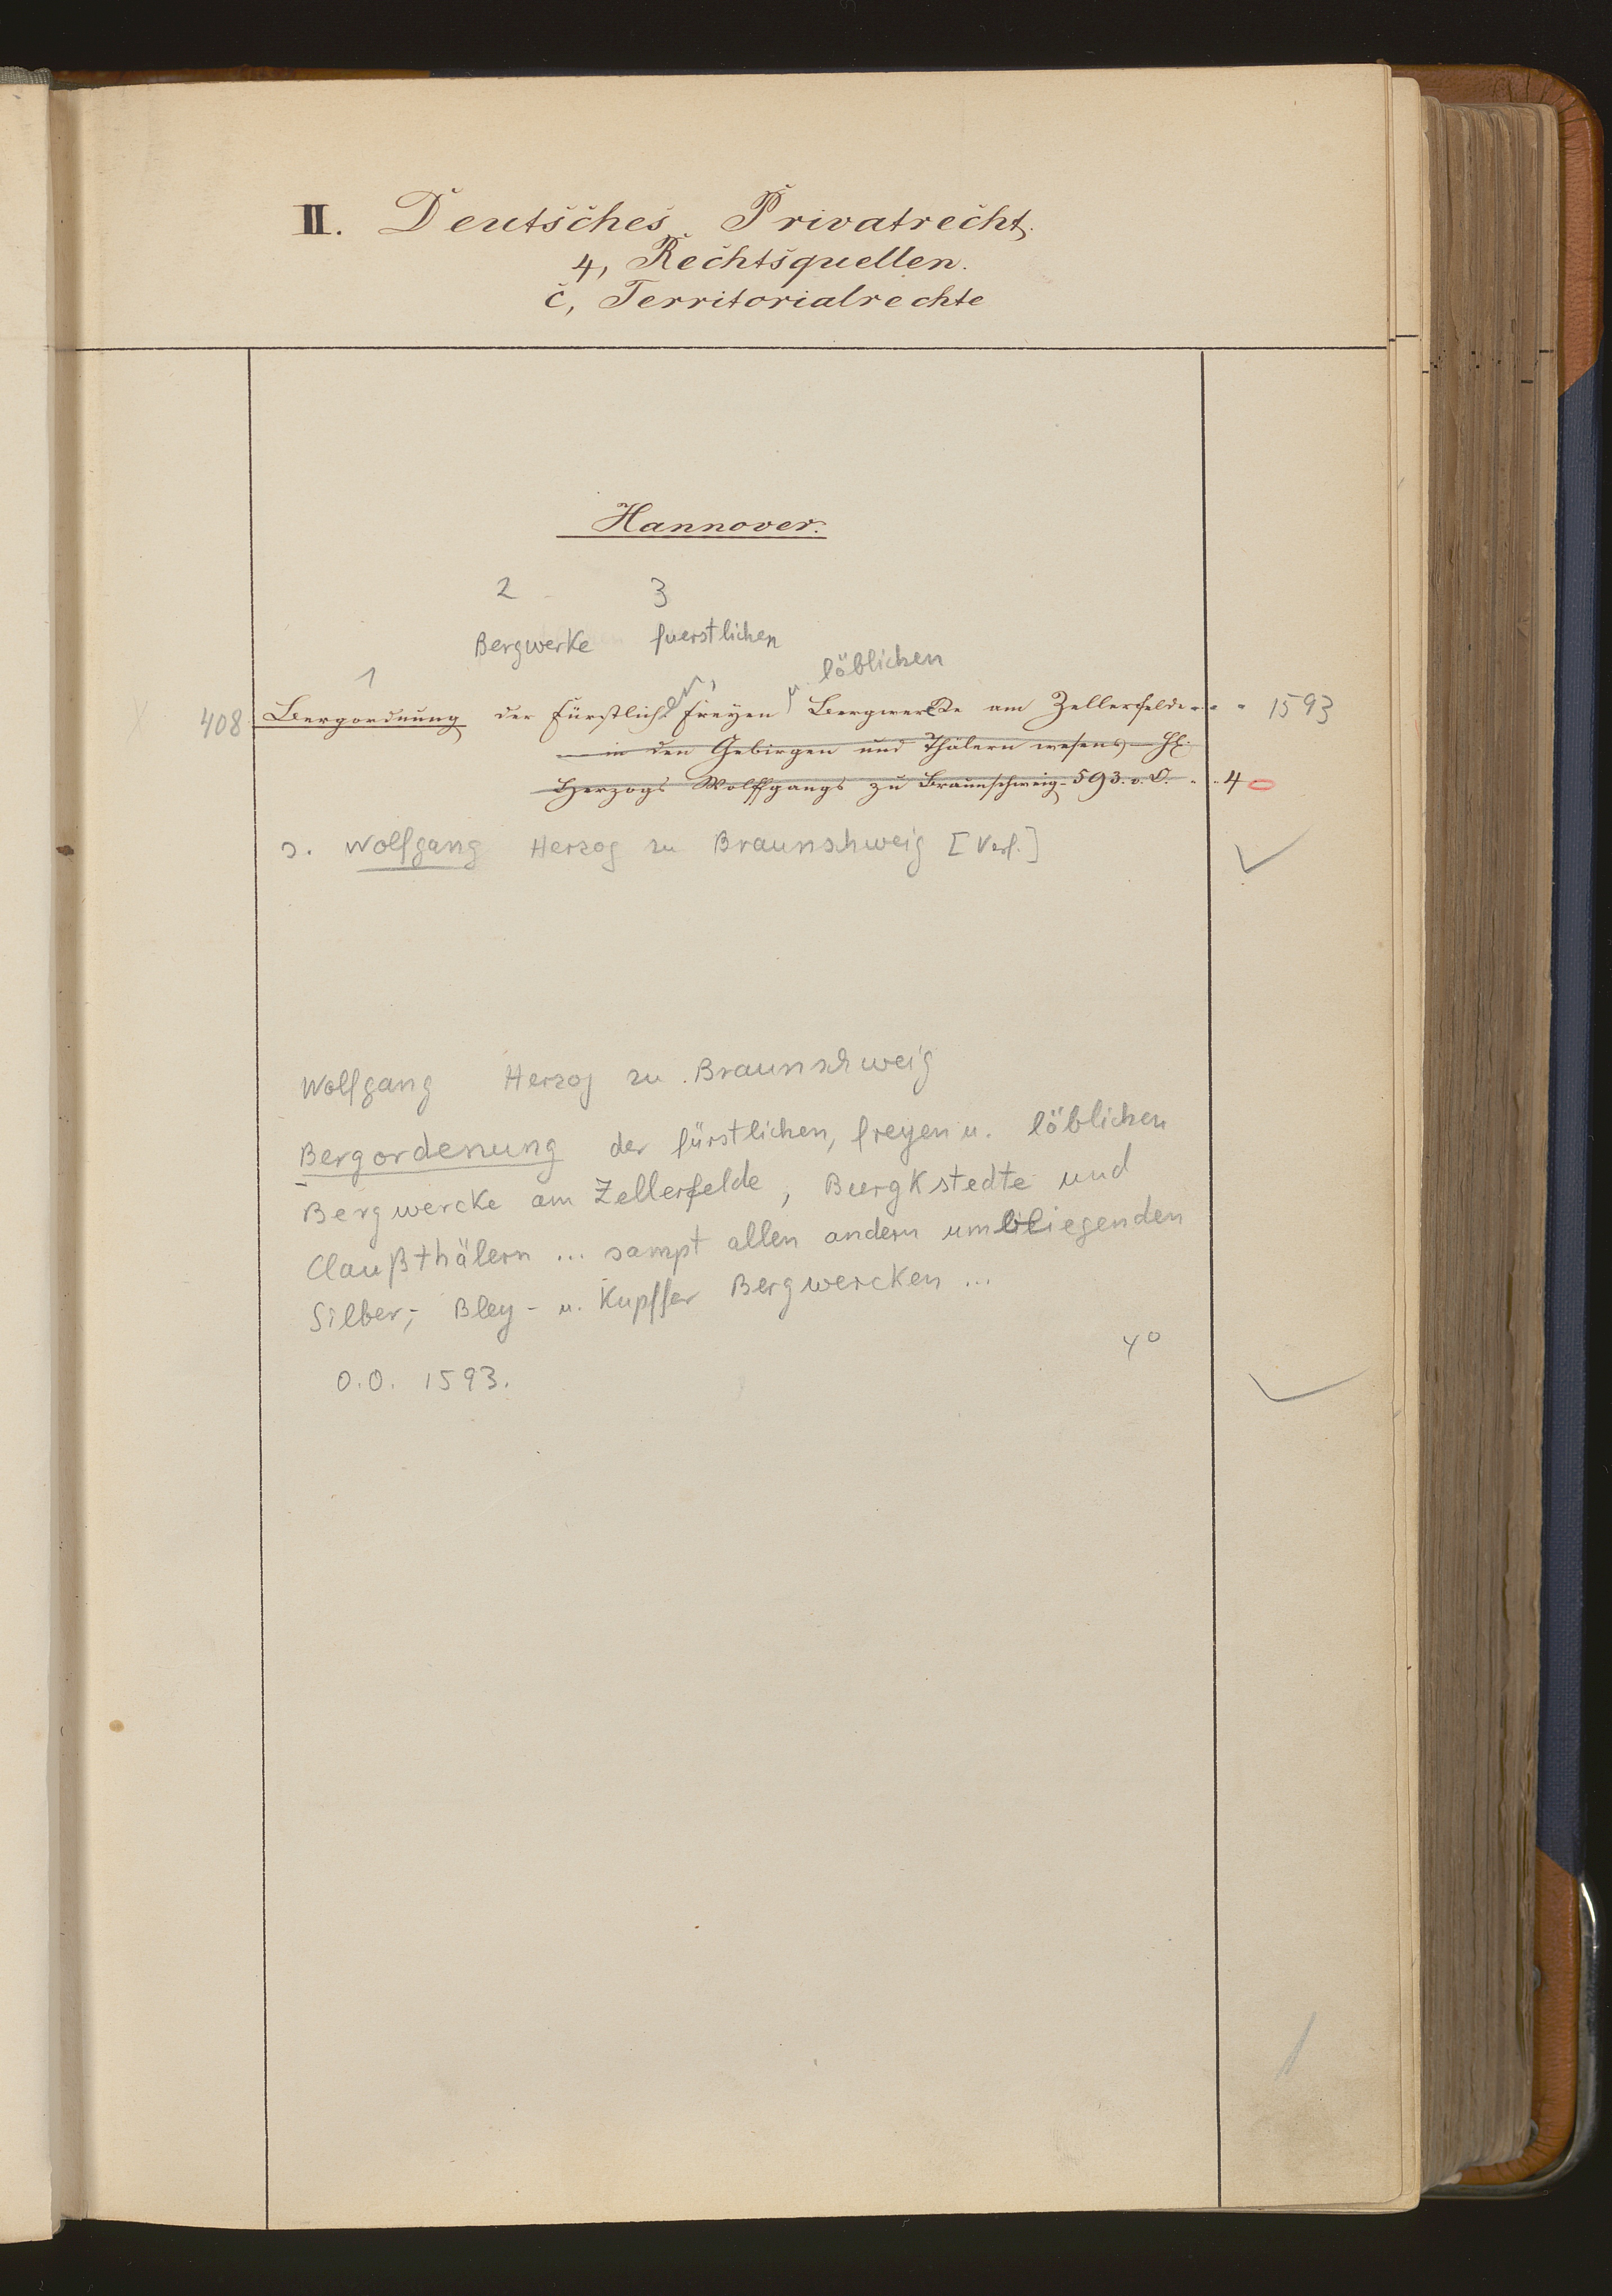 II. Deutsches Privatrecht.
4, Rechtsquellen.
c, Territorialrechte
Hannover.
2 3
Bergwerke fuerstlichen
1 löblichen
408 Bergordnung der Fürstlichen, freyen u Bergwercke am Zellerfelde 1593
in den Gebirgen und Thälern
Herzogs Wolffgangs zu Braunschweig 593. o. O. 4
s. Wolfgang Herzog zu Braunschweig [Verf.]
Wolfgang Herzog zu Braunschweig
Bergordenung der fürstlichen, freyen u. löblichen
Bergwercke am Zellerfelde, Burgkstedte und
Claußthälern ... sampt allen andern umbliegenden
Silber-, Bley- u. Kupffer Bergwercken ...
4°
O.O. 1593.